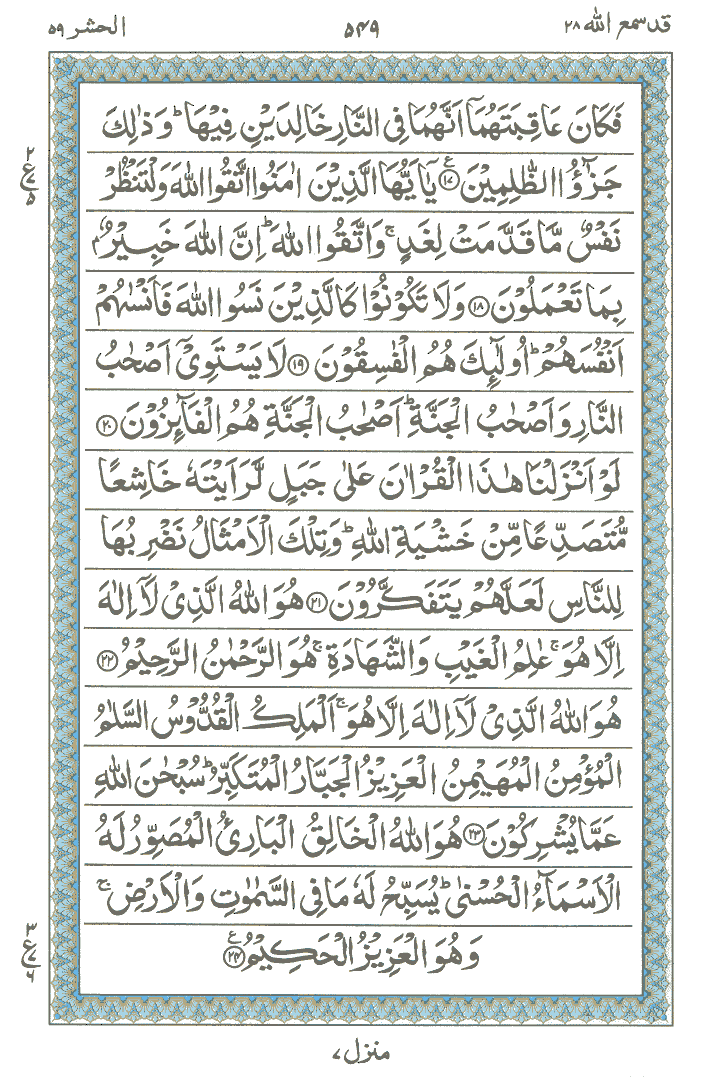 قد سمع الله ۲۸
۵۴۹
الحشر ۵۹
فَكَانَ عَاقِبَتَهُمَآ اَنَّهُمَا فِى النَّارِ خَالِدَيْنِ فِيْهَا ؕ وَ ذٰلِكَ
جَزٰٓؤُا الظّٰلِمِيْنَ ۧ‏﴿۱۷﴾ يٰۤاَيُّهَا الَّذِيْنَ اٰمَنُوا اتَّقُوا اللّٰهَ وَلْتَنْظُرْ
نَفْسٌ مَّا قَدَّمَتْ لِغَدٍ ۚ وَاتَّقُوا اللّٰهَ ؕ اِنَّ اللّٰهَ خَبِيْرٌۢ
بِمَا تَعْمَلُوْنَ ﴿۱۸﴾ وَلَا تَكُوْنُوْا كَالَّذِيْنَ نَسُوا اللّٰهَ فَاَنْسٰٮهُمْ
اَنْفُسَهُمْ ؕ اُولٰٓئِكَ هُمُ الْفٰسِقُوْنَ ﴿۱۹﴾ لَا يَسْتَوِىْۤ اَصْحٰبُ
النَّارِ وَاَصْحٰبُ الْجَنَّةِ ؕ اَصْحٰبُ الْجَنَّةِ هُمُ الْفَآئِزُوْنَ ﴿۲۰﴾
لَوْ اَنْزَلْنَا هٰذَا الْقُرْاٰنَ عَلٰى جَبَلٍ لَّرَاَيْتَهٗ خَاشِعًا
مُّتَصَدِّعًا مِّنْ خَشْيَةِ اللّٰهِ ؕ وَتِلْكَ الْاَمْثَالُ نَضْرِبُهَا
لِلنَّاسِ لَعَلَّهُمْ يَتَفَكَّرُوْنَ ﴿۲۱﴾ هُوَ اللّٰهُ الَّذِىْ لَاۤ اِلٰهَ
اِلَّا هُوَ ۚ عٰلِمُ الْغَيْبِ وَالشَّهَادَةِ ۚ هُوَ الرَّحْمٰنُ الرَّحِيْمُ ﴿۲۲﴾
هُوَ اللّٰهُ الَّذِىْ لَاۤ اِلٰهَ اِلَّا هُوَ ۚ اَلْمَلِكُ الْقُدُّوْسُ السَّلٰمُ
الْمُؤْمِنُ الْمُهَيْمِنُ الْعَزِيْزُ الْجَبَّارُ الْمُتَكَبِّرُ ؕ سُبْحٰنَ اللّٰهِ
عَمَّا يُشْرِكُوْنَ ﴿۲۳﴾ هُوَ اللّٰهُ الْخَالِقُ الْبَارِئُ الْمُصَوِّرُ لَهُ
الْاَسْمَآءُ الْحُسْنٰى ؕ يُسَبِّحُ لَهٗ مَا فِى السَّمٰوٰتِ وَالْاَرْضِ ۚ
وَهُوَ الْعَزِيْزُ الْحَكِيْمُ ۧ‏﴿۲۴﴾
۲
ع ۷
۵
۳
ع ۷
۶
منزل ۷